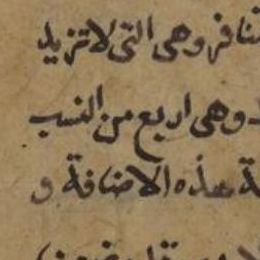 متنافر وهى التى لا تزيد
وهى اربع من النسب
هذه الاضافة و